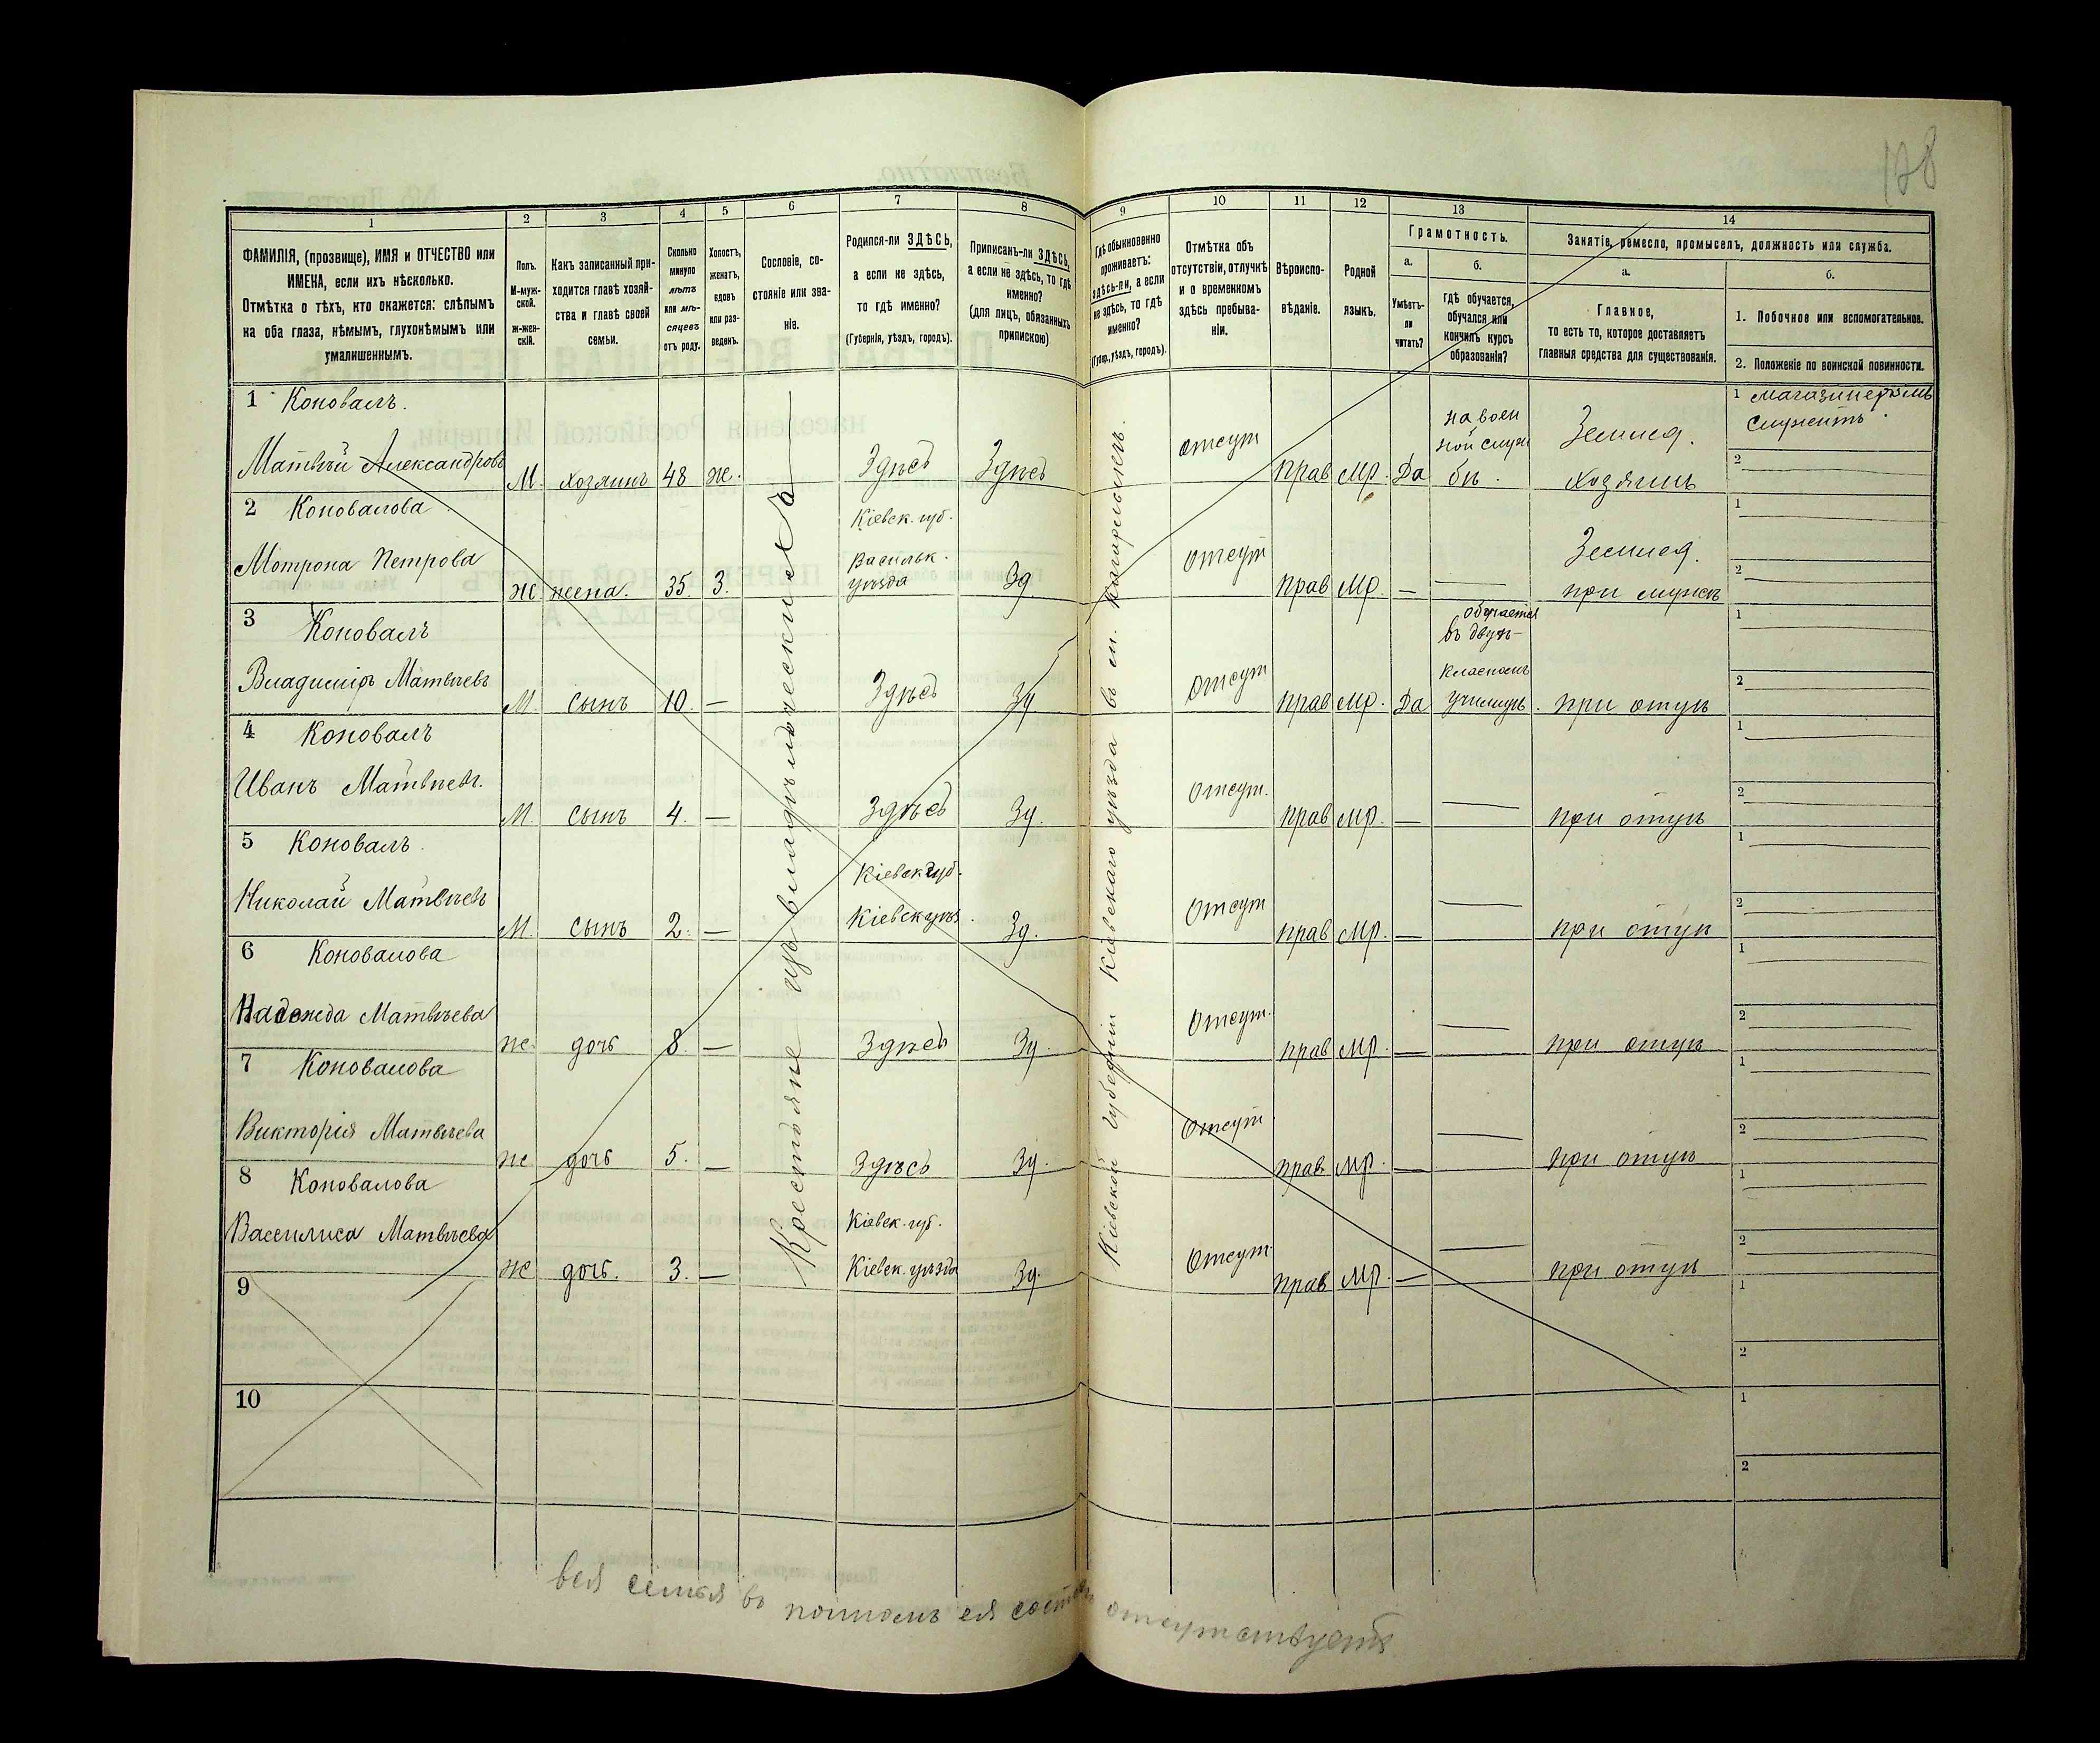 128
1 2 3 4 5 6 7 8 9 10 11 12 13 14
ФАМИЛІЯ, (прозвище), ИМЯ и ОТЧЕСТВО или
ИМЕНА, если ихъ нѣсколько.
Отмѣтка о тѣхъ, кто окажется: слѣпымъ
на оба глаза, нѣмымъ, глухонѣмымъ или
умалишеннымъ.
Полъ.
М-муж-
ской.
ж-жен-
скій.
Какъ записанный при-
ходится главѣ хозяй-
ства и главѣ своей
семьи.
Сколько
минуло
лѣтъ
или мѣ-
сяцевъ
отъ роду.
Холостъ,
женатъ,
вдовъ
или раз-
веденъ.
Сословіе, со-
стояніе или зва-
ніе.
Родился-ли ЗДѢСЬ,
а если не здѣсь,
то гдѣ именно?
(Губернія, уѣздъ, городъ).
Приписанъ-ли ЗДѢСЬ,
а если не здѣсь, то гдѣ
именно?
(для лицъ, обязанныхъ
припискою)
Гдѣ обыкновенно
проживаетъ:
здѣсь-ли, а если
не здѣсь, то гдѣ
именно?
(Губер., уѣздъ, городъ).
Отмѣтка объ
отсутствіи, отлучкѣ
и о временномъ
здѣсь пребыва-
ніи.
Вѣроиспо-
вѣданіе.
Родной
языкъ.
Грамотность.
а.
Умѣетъ-
ли
читать?
б.
гдѣ обучается,
обучался или
кончилъ курсъ
образованія?
Занятіе, ремесло, промыселъ, должность или служба.
а.
Главное,
то есть то, которое доставляетъ
главныя средства для существованія.
б.
1. Побочное или вспомогательное.
2. Положеніе по воинской повинности.
Крестьяне изъ владѣльческихъ
Кіевской губерніи Кіевскаго уѣзда въ
1 Коновалъ.
Матвѣй Александровъ
М. хозяинъ 48 ж. Здѣсь Здѣсь
отсут прав мр. Да
на воен
ной служ
бѣ.
Землед.
хозяинъ
1 магазинеромъ
служитъ
2
2 Коновалова
Мотрона Петрова
ж жена. 35. З.
Кіевск. губ.
Васильк.
уѣзда
Зд.
отсут прав мр. —
Землед.
при мужѣ
1
2
3 Коноваль
Владиміръ Матвѣевъ
М. сынъ 10. — Здѣсь Зд
отсут прав мр. Да
обучается
въ двух-
класномъ
училищѣ.
при отцѣ
1
2
4 Коноваль
Иванъ Матвѣевъ.
М. сынъ 4. — Здѣсь Зд.
отсут. прав мр. — при отцѣ
1
2
5 Коновалъ.
Николай Матвѣевъ
М. сынъ 2. —
Кіевск губ.
Кіевск уѣз.
Зд.
отсут прав мр. — при отцѣ
1
2
6 Коновалова
Надежда Матвѣева
ж. дочь 8. — Здѣсь Зд.
отсут. прав мр. — при отцѣ
1
2
7 Коновалова
Викторія Матвѣева
ж дочь 5. — Здѣсь Зд.
отсут прав. мр. — при отцѣ
1
2
8 Коновалова
Василиса Матвѣева
ж дочь. 3. —
Кіевск. губ.
Кіевск. уѣзда
Зд.
отсут. прав мр. — при отцѣ
1
2
9
1
2
10
1
2
вся семья въ полномъ ея составѣ отсутствуетъ